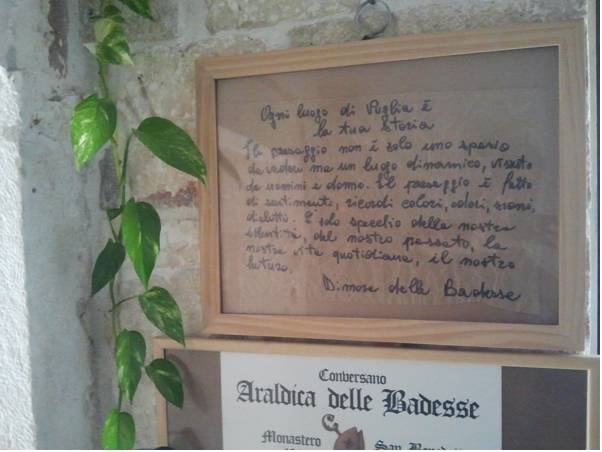 Ogni luogo di Puglia è
la tua Storia
Il paesaggio non è solo uno spazio
da vedere ma un luogo dinamico, vissuto
da uomini e donne. Il paesaggio è fatto
di sentimento, ricordi colori, odori, suoni,
dialetti. È solo specchio della nostra
identità, del nostro passato, la
nostra vita quotidiana, il nostro
futuro.
Dimore delle Badesse
Conversano
Araldica delle Badesse
Monastero San